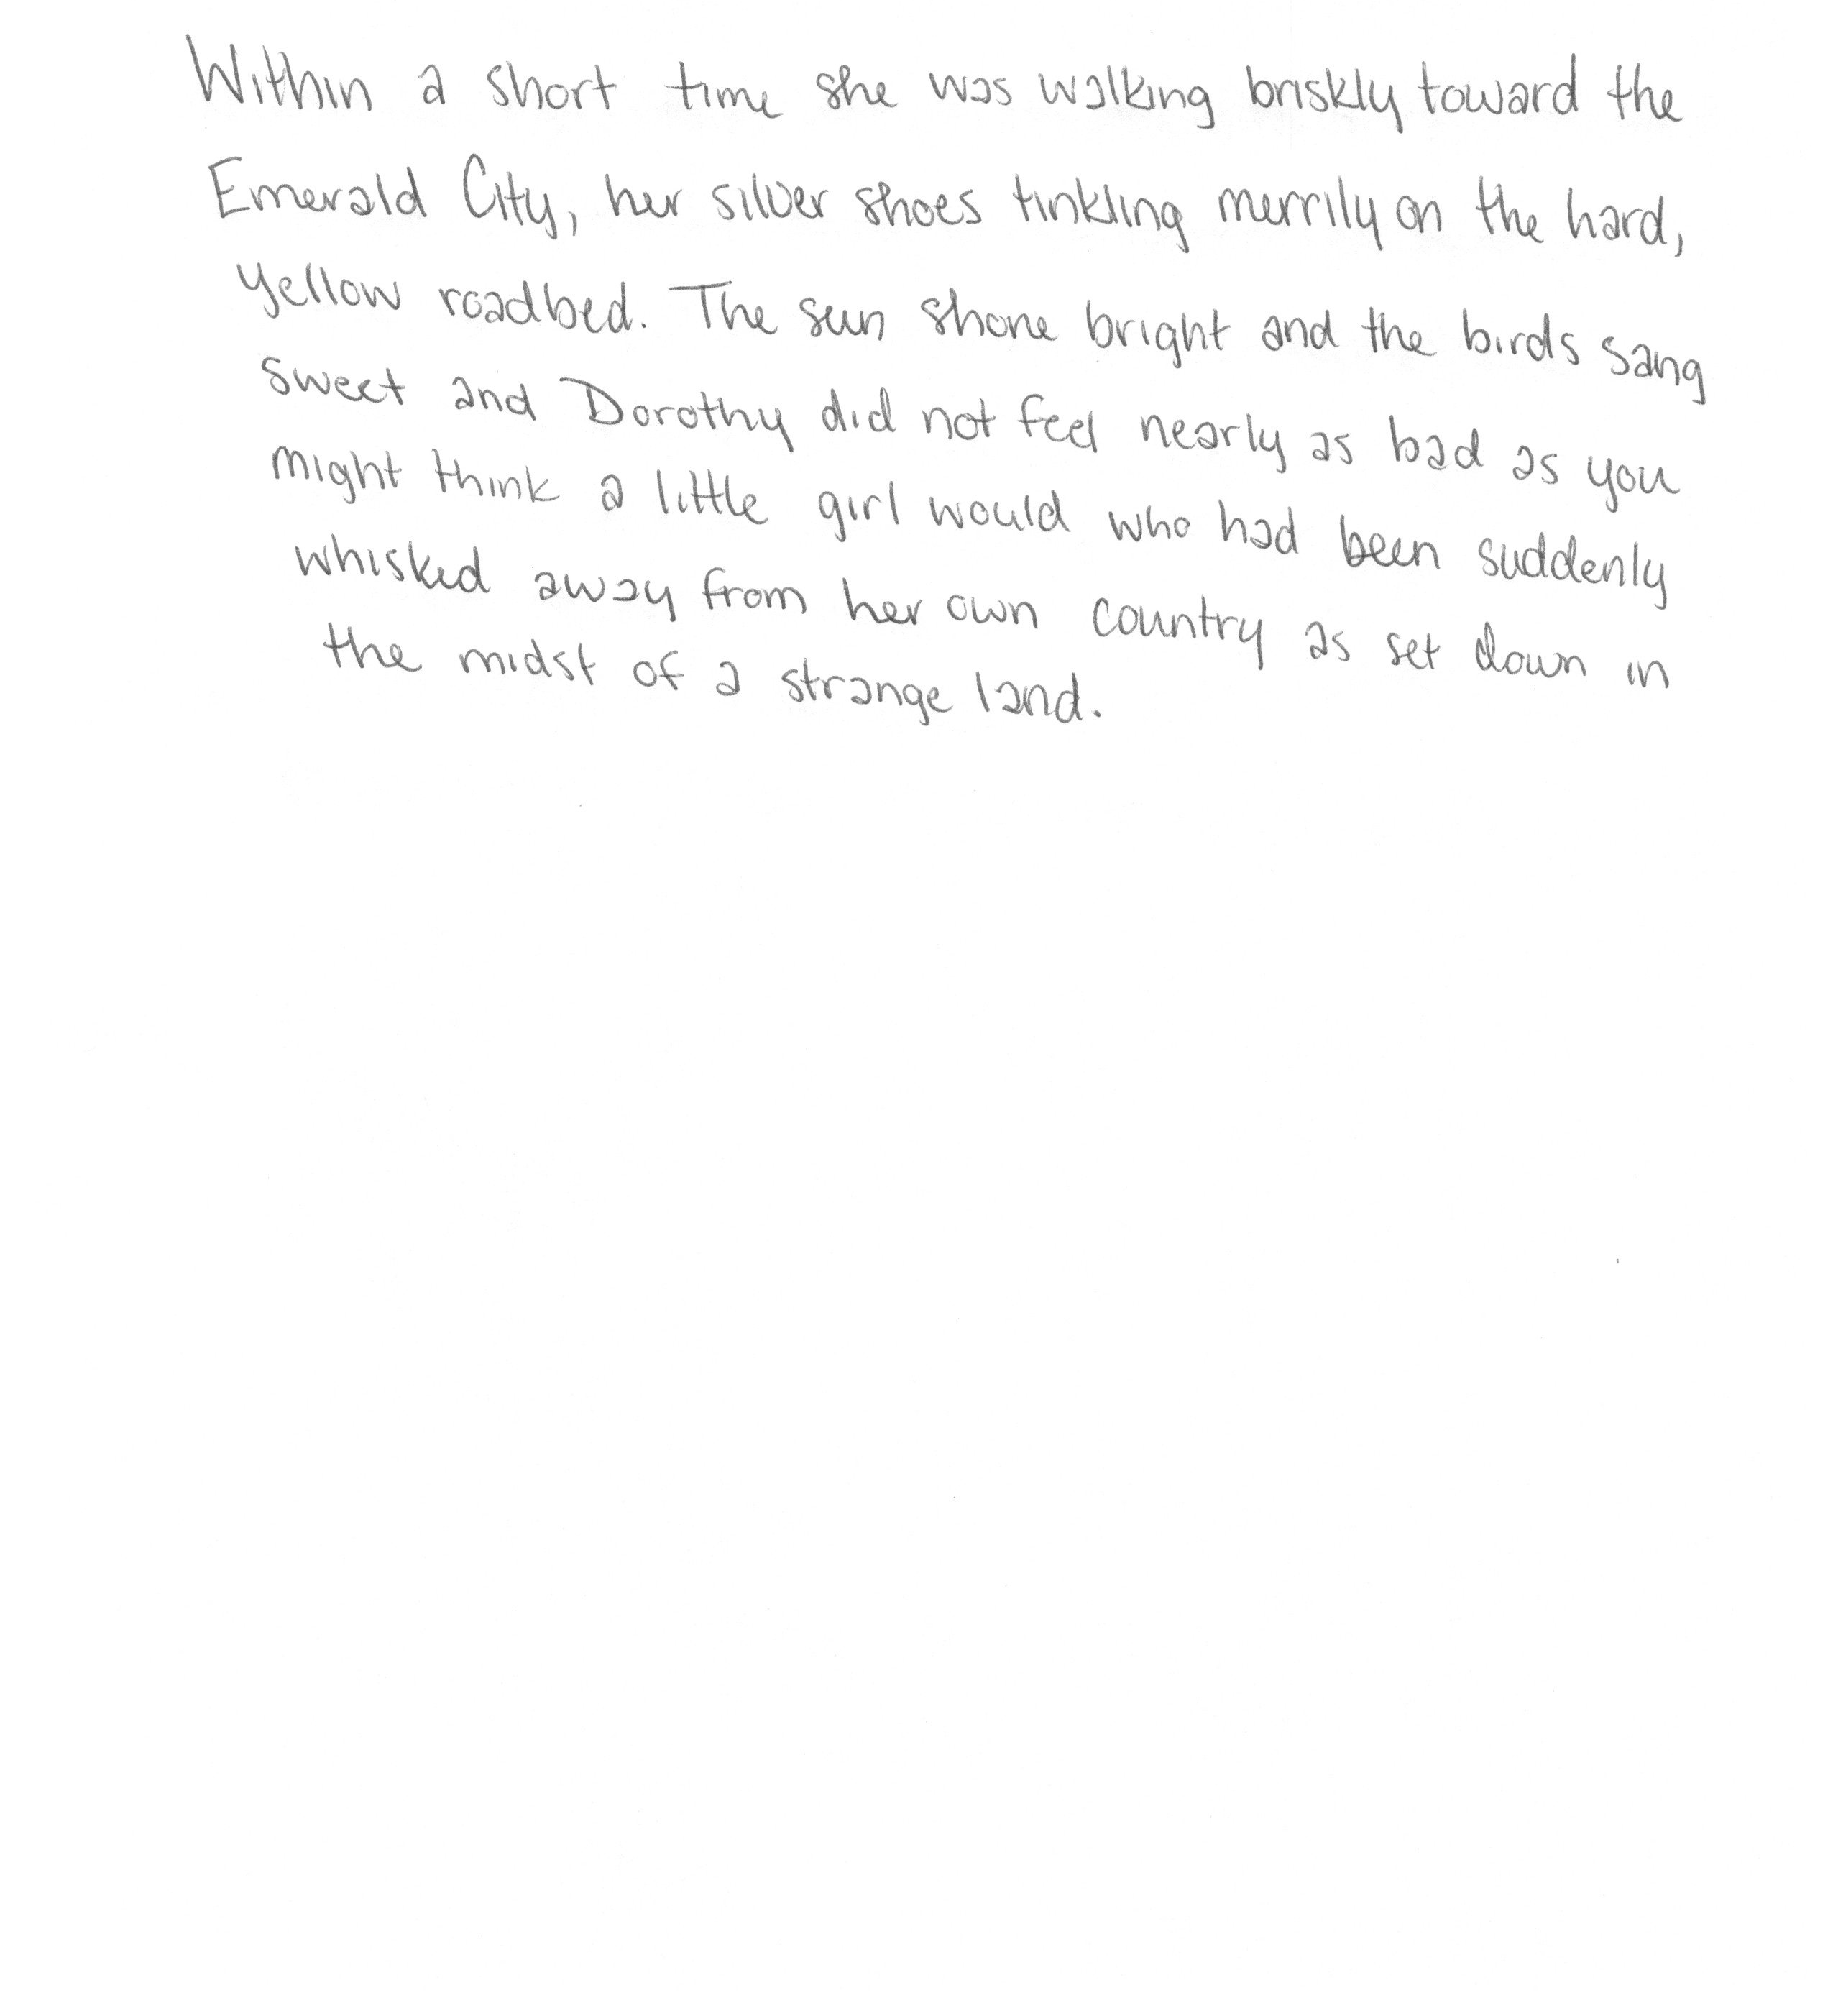 Within a short time she was walking briskly toward the
Emerald City, her silver shoes tinkling merrily on the hard,
yellow roadbed. The sun shone bright and the birds sang
sweet and Dorothy did not feel nearly as bad as you
might think a little girl would who had been suddenly
whisked away from her own country as set down in
the midst of a strange land.